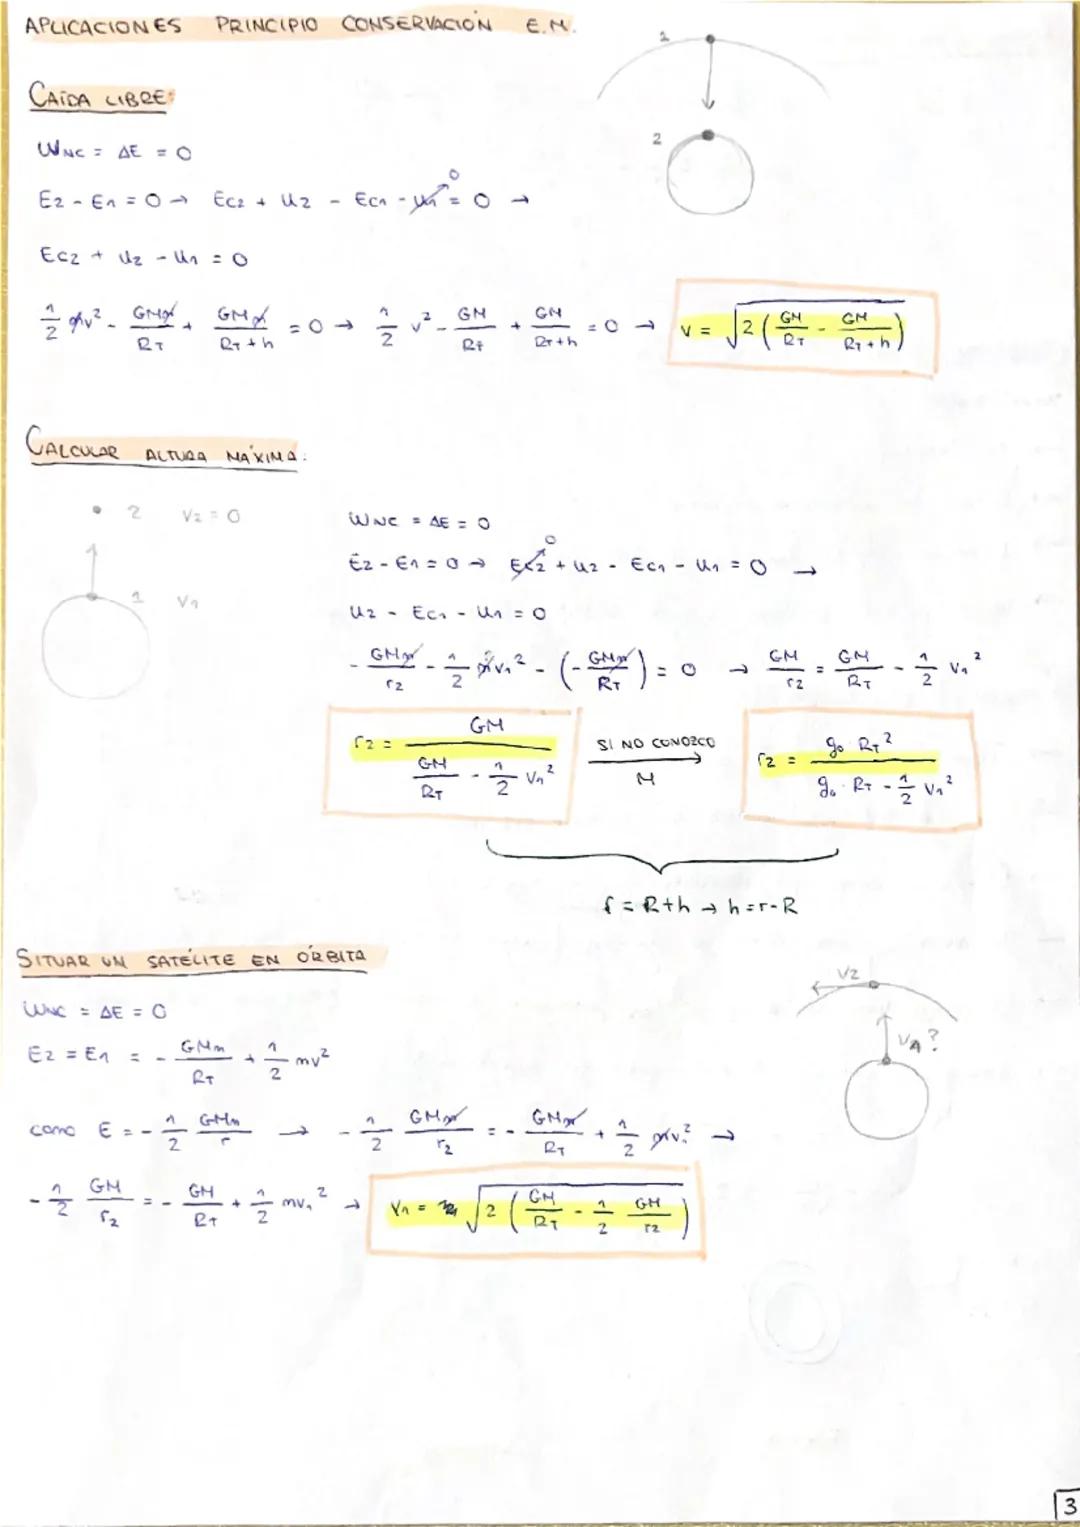 APLICACIONES PRINCIPIO CONSERVACIÓN E.M.
1
CAÍDA LIBRE:
2
WNC = ΔE = 0
E2 - E1 = 0 → Ec2 + U2 - Ec1 - U1 = 0 →
0
Ec2 + U2 - U1 = 0
1/2 mv² - GMm/RT + GMm/(RT + h) = 0 → 1/2 v² - GM/RT + GM/(RT+h) = 0 → v = √(2(GM/RT - GM/(RT+h)))
CALCULAR ALTURA MÁXIMA:
2 V2 = 0
1 V1
WNC = ΔE = 0
0
E2 - E1 = 0 → Ec2 + U2 - Ec1 - U1 = 0 →
U2 - Ec1 - U1 = 0
- GMm/r2 - 1/2 mv1² - (- GMm/RT) = 0 → GM/r2 = GM/RT - 1/2 V1²
r2 = GM/(GM/RT - 1/2 V1²) SI NO CONOZCO M → r2 = g0 RT²/(g0 · RT - 1/2 V1²)
r = R+h → h = r-R
SITUAR UN SATÉLITE EN ÓRBITA
V2
VA?
WNC = ΔE = 0
E2 = E1 = - GMm/RT + 1/2 mv²
como E = - 1/2 GMm/r → - 1/2 GMm/r2 = - GMm/RT + 1/2 mv1² →
- 1/2 GM/r2 = - GM/RT + 1/2 mv1² → V1 = √(2(GM/RT - 1/2 GM/r2))
3